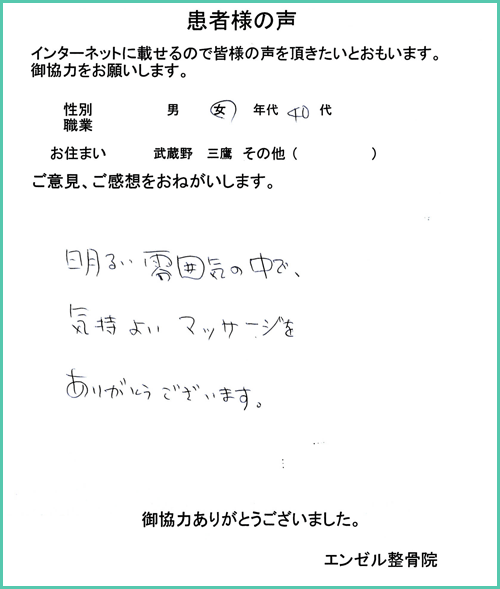 患者様の声
インターネットに載せるので皆様の声を頂きたいとおもいます。
御協力をお願いします。
性別 男 女 年代 40 代
職業
お住まい 武蔵野 三鷹 その他 ( )
ご意見、ご感想をおねがいします。
明るい雰囲気の中で、
気持よいマッサージを
ありがとうございます。
御協力ありがとうございました。
エンゼル整骨院